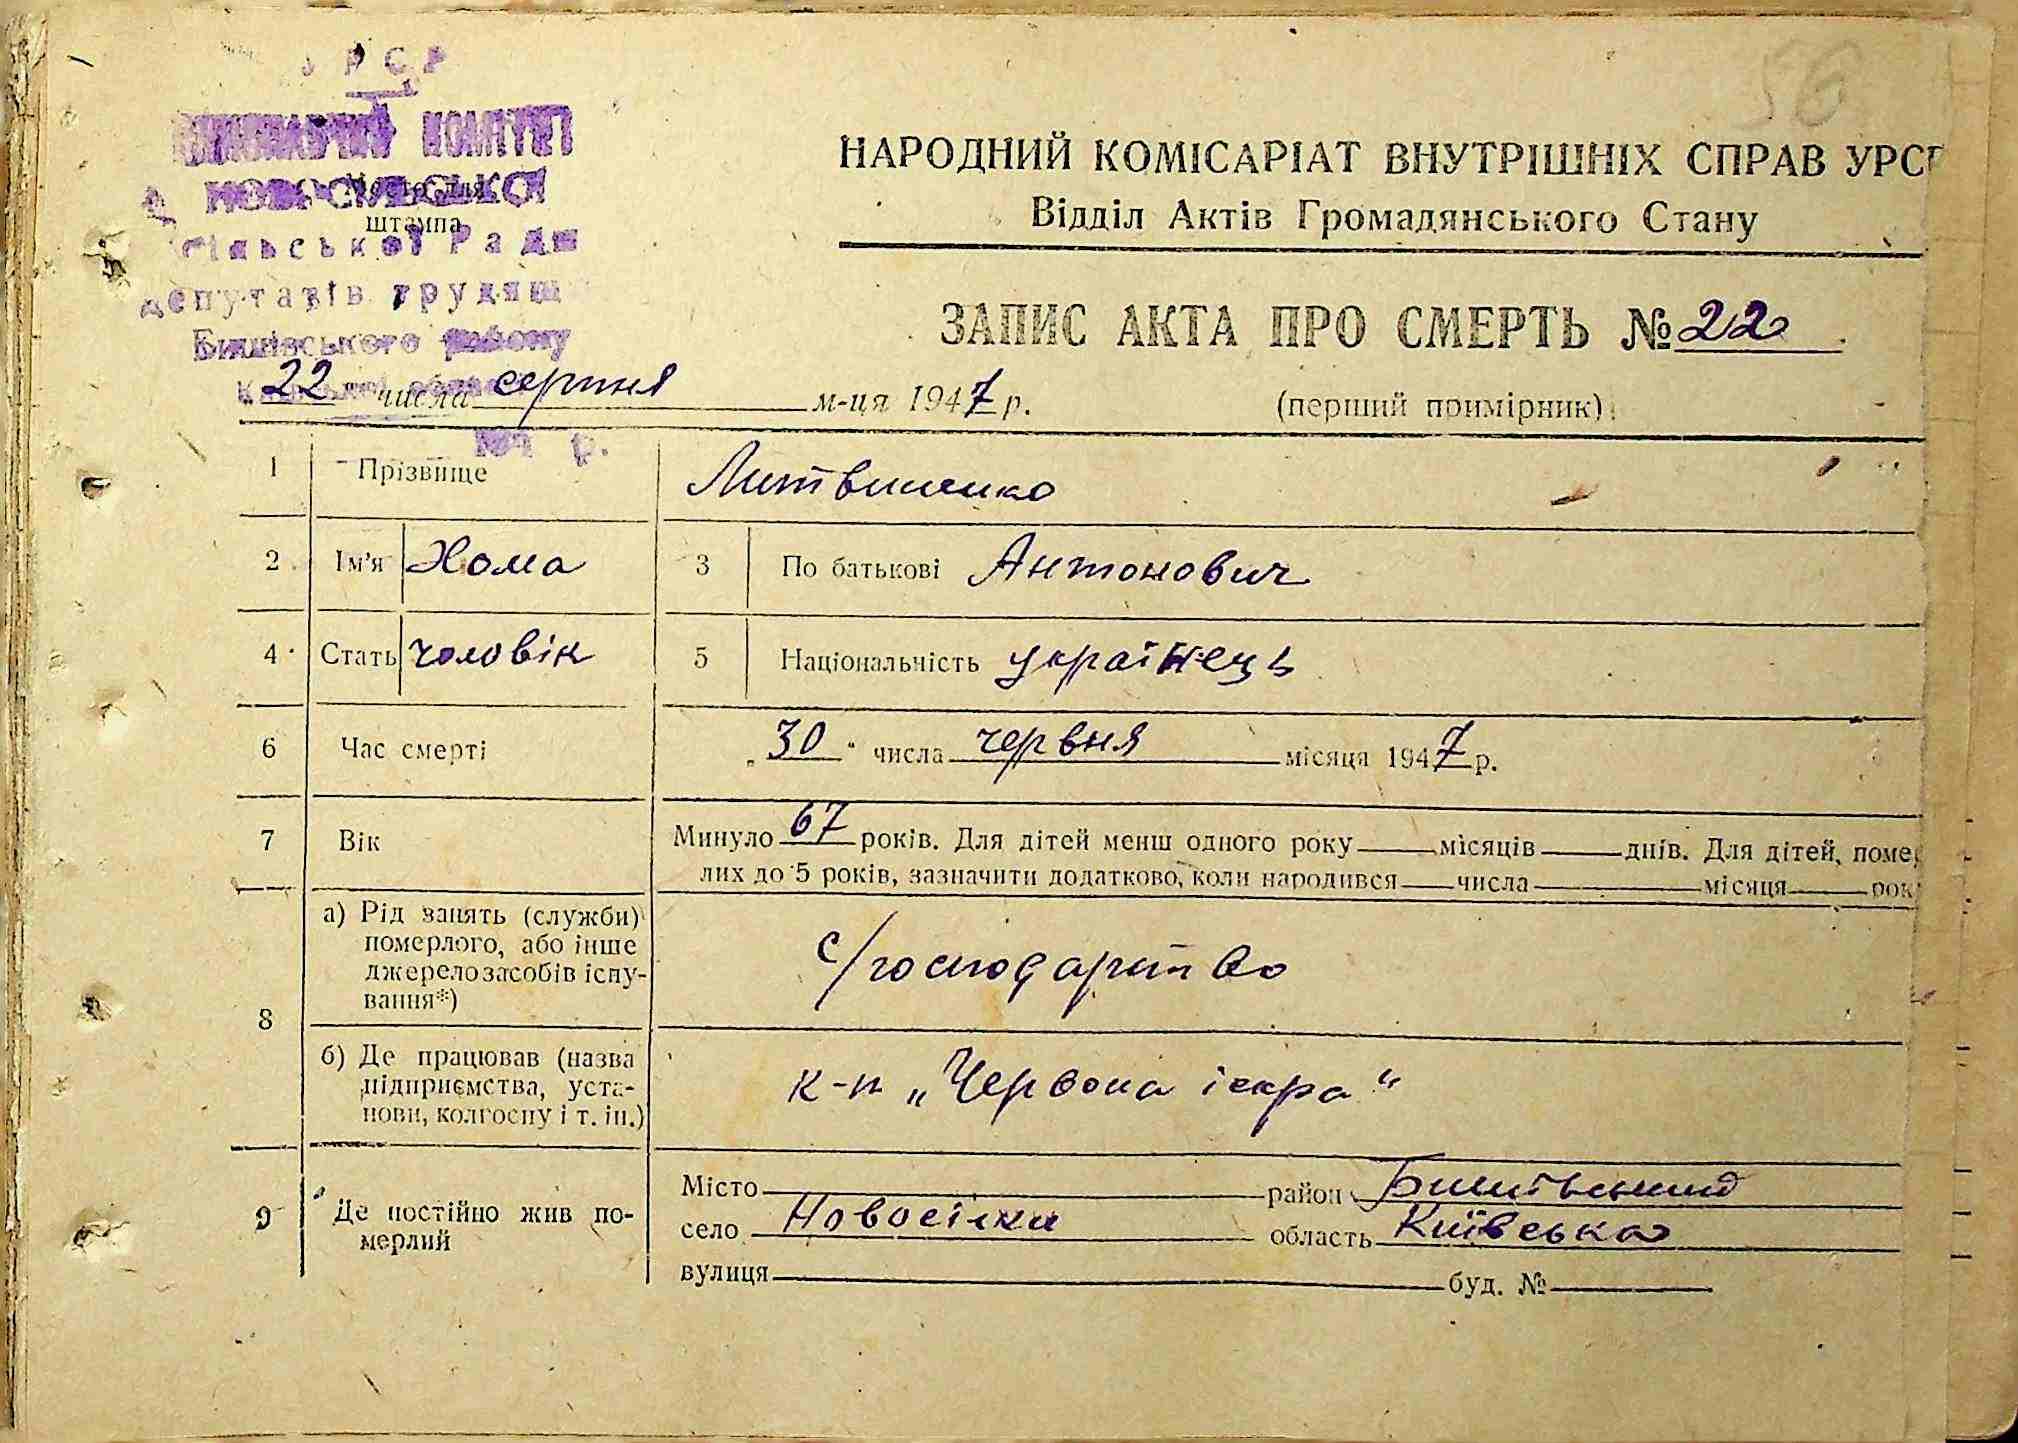 УРСР
56
ВИКОНАВЧИЙ КОМІТЕТ
НОВОСІЛЬСЬКОЇ
Місце для
штампа
Сільської Ради
депутатів трудящ
Бишівського району
194 р.
НАРОДНИЙ КОМІСАРІАТ ВНУТРІШНІХ СПРАВ УРСР
Відділ Актів Громадянського Стану
ЗАПИС АКТА ПРО СМЕРТЬ № 22
„22" числа серпня м-ця 1947 р.
(перший примірник)
1 Прізвище Литвиненко
2 Ім'я Хома 3 По батькові Антонович
4 Стать чоловік 5 Національність українець
6 Час смерті „30" числа червня місяця 1947 р.
7 Вік Минуло 67 років. Для дітей менш одного року ___ місяців ___ днів. Для дітей, помер
лих до 5 років, зазначити додатково, коли народився ___ числа ___ місяця ___ рок
8 а) Рід занять (служби)
померлого, або інше
джерело засобів існу-
вання*)
с/господарство
б) Де працював (назва
підприємства, уста-
нови, колгоспу і т. ін.)
к-п „Червона іскра"
9 Де постійно жив по-
мерлий
Місто ___ район Бишівський
село Новосілки область Київська
вулиця ___ буд. № ___